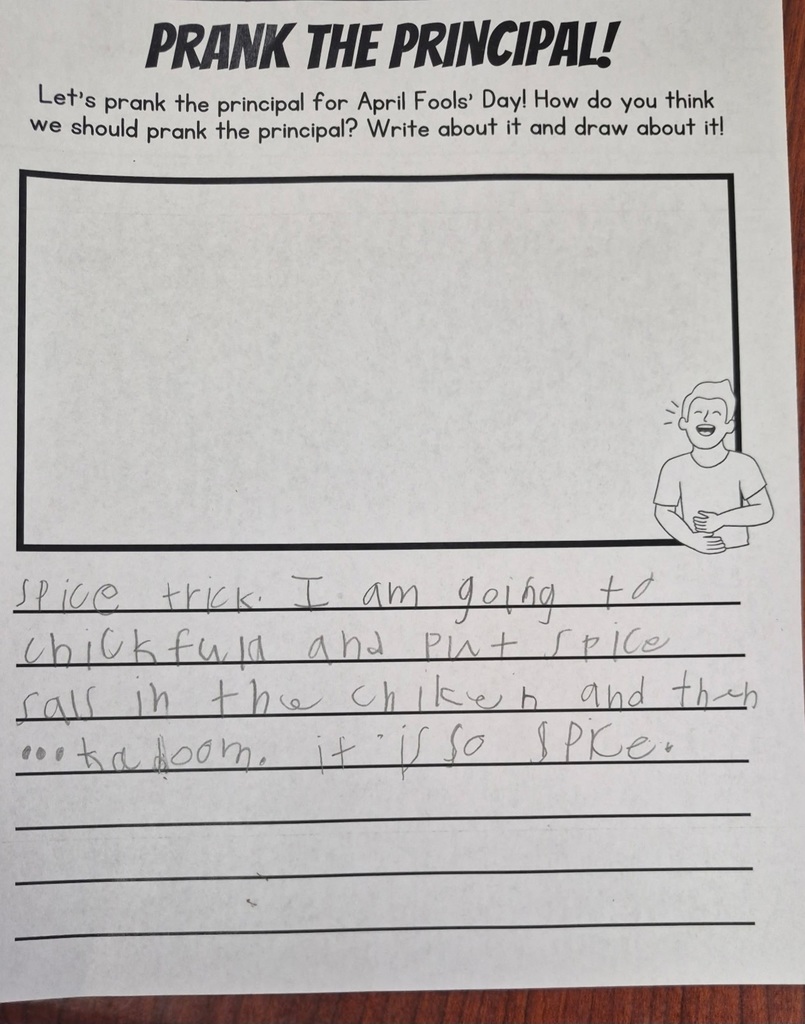 PRANK THE PRINCIPAL!
Let's prank the principal for April Fools' Day! How do you think
we should prank the principal? Write about it and draw about it!
spice trick. I am going to
chickfula and put spice
sass in the chiken and then
...kaboom. it is so spice.